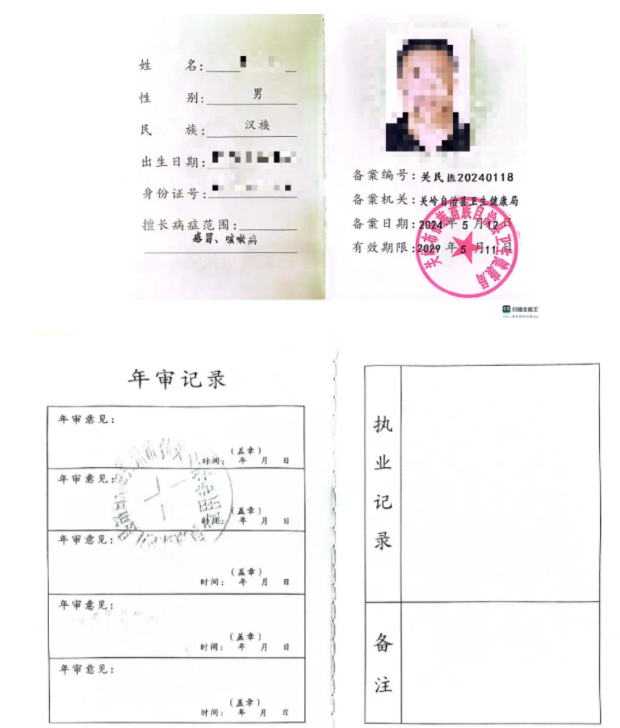 姓 名:
性 别: 男
民 族: 汉族
出生日期:
身份证号:
擅长病症范围:
感冒、咳嗽病
备案编号: 关民医20240118
备案机关: 关岭自治县卫生健康局
备案日期: 2024 年 5 月 12 日
有效期限: 2029 年 5 月 11 日
CS 扫描全能王
年审记录
年审意见:
(盖章)
时间: 年 月 日
年审意见:
(盖章)
时间: 年 月 日
年审意见:
(盖章)
时间: 年 月 日
年审意见:
(盖章)
时间: 年 月 日
年审意见:
(盖章)
时间: 年 月 日
执业记录
备注